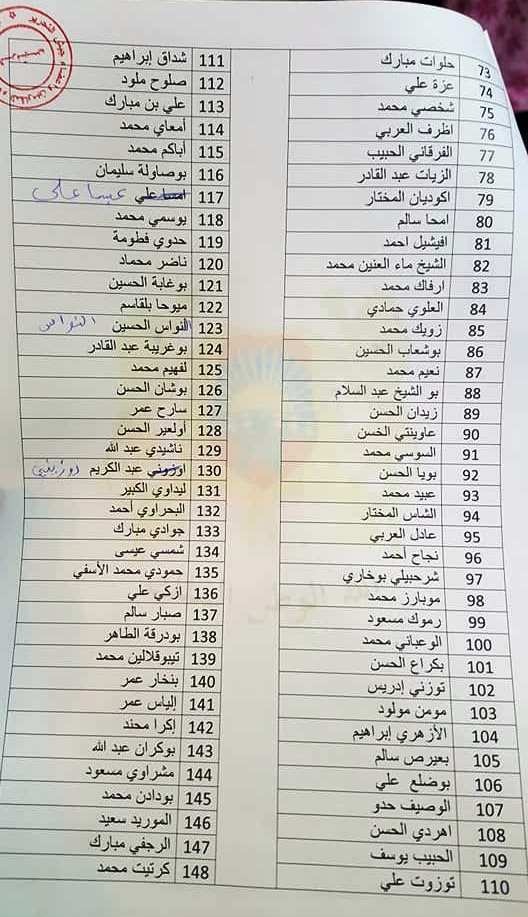 73 حلوات مبارك
74 عزة علي
75 شخصي محمد
76 اظرف العربي
77 الفرقاني الحبيب
78 الزيات عبد القادر
79 اكوديان المختار
80 امحا سالم
81 افيشيل احمد
82 الشيخ ماء العنين محمد
83 ارفاك محمد
84 العلوي حمادي
85 زويك محمد
86 بوشعاب الحسين
87 نعيم محمد
88 بو الشيخ عبد السلام
89 زيدان الحسن
90 عاوينتي الخسن
91 السوسي محمد
92 بويا الحسن
93 عبيد محمد
94 الشاس المختار
95 عادل العربي
96 نجاح أحمد
97 شرحبيلي بوخاري
98 موبارز محمد
99 رموك مسعود
100 الوعباني محمد
101 بكراع الحسن
102 توزني إدريس
103 مومن مولود
104 الأزهري إبراهيم
105 بعيرص سالم
106 بوضلع علي
107 الوصيف حدو
108 اهردي الحسن
109 الحبيب يوسف
110 توزوت علي
111 شداق إبراهيم
112 صلوح ملود
113 علي بن مبارك
114 أمعاي محمد
115 أباكم محمد
116 بوصاولة سليمان
117 علي عيسا علي
118 يوسمي محمد
119 حدوي فطومة
120 ناضر محماد
121 بوغابة الحسين
122 ميوحا بلقاسم
123 النواس الحسين النواس
124 بوغريبة عبد القادر
125 لفهيم محمد
126 بوشان الحسن
127 سارح عمر
128 أولعير الحسن
129 ناشيدي عبد الله
130 عبد الكريم
131 ليداوي الكبير
132 البحراوي أحمد
133 جوادي مبارك
134 شمسي عيسى
135 حمودي محمد الأسفي
136 ازكي علي
137 صبار سالم
138 بودرقة الطاهر
139 تيبوقلالين محمد
140 بنخار عمر
141 إلياس عمر
142 إكرا محند
143 بوكران عبد الله
144 مشراوي مسعود
145 بودادن محمد
146 الموريد سعيد
147 الرجفي مبارك
148 كرتيت محمد